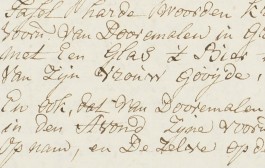 Tafel harde Woorden k
Voorn Van Dooremalen in G
met Een Glas 't Bier
Van Zijn Vrouw Gooijde,
En ook, dat Van Dooremalen
in den Avond Zyne voorn
op nam, en De Zelve op d